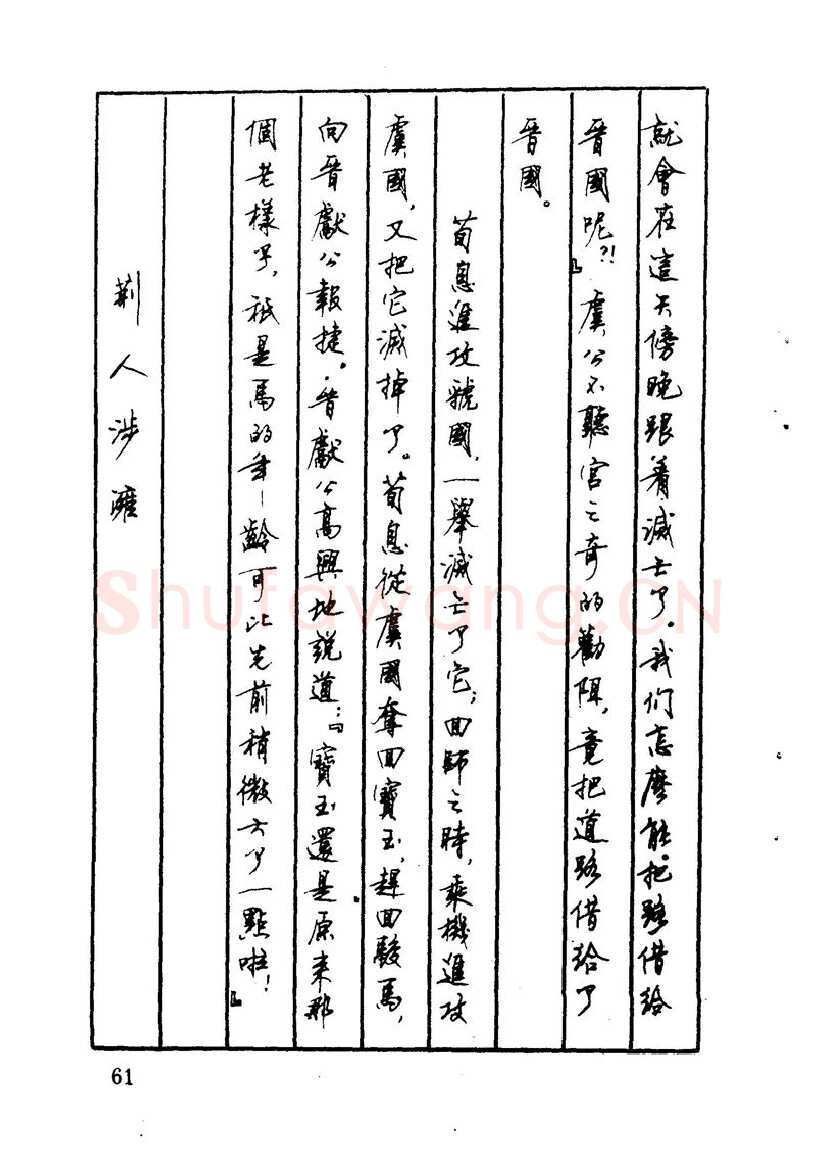 就會在這天傍晚跟着滅亡了。我们怎麽能把路借給
晉國呢?!』虞公不聽宫之奇的勸阻，竟把道路借給了
晉國。
荀息進攻虢國，一舉滅亡了它；回師之時，乘機進攻
虞國，又把它滅掉了。荀息從虞國奪回寶玉，趕回駿馬，
向晉獻公報捷。晉獻公高興地説道：『寶玉還是原来那
個老樣子，祇是馬的年齡可比先前稍微大了一點啦！』
荆人涉澭
61
Shufawang.CN